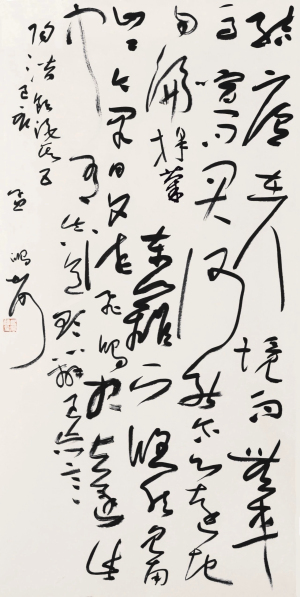 結廬在人境而無車
馬喧問君何能爾心遠地
自偏採菊東籬下悠然見南
山山氣日夕佳飛鳥相與還此
中有真意欲辨已忘言